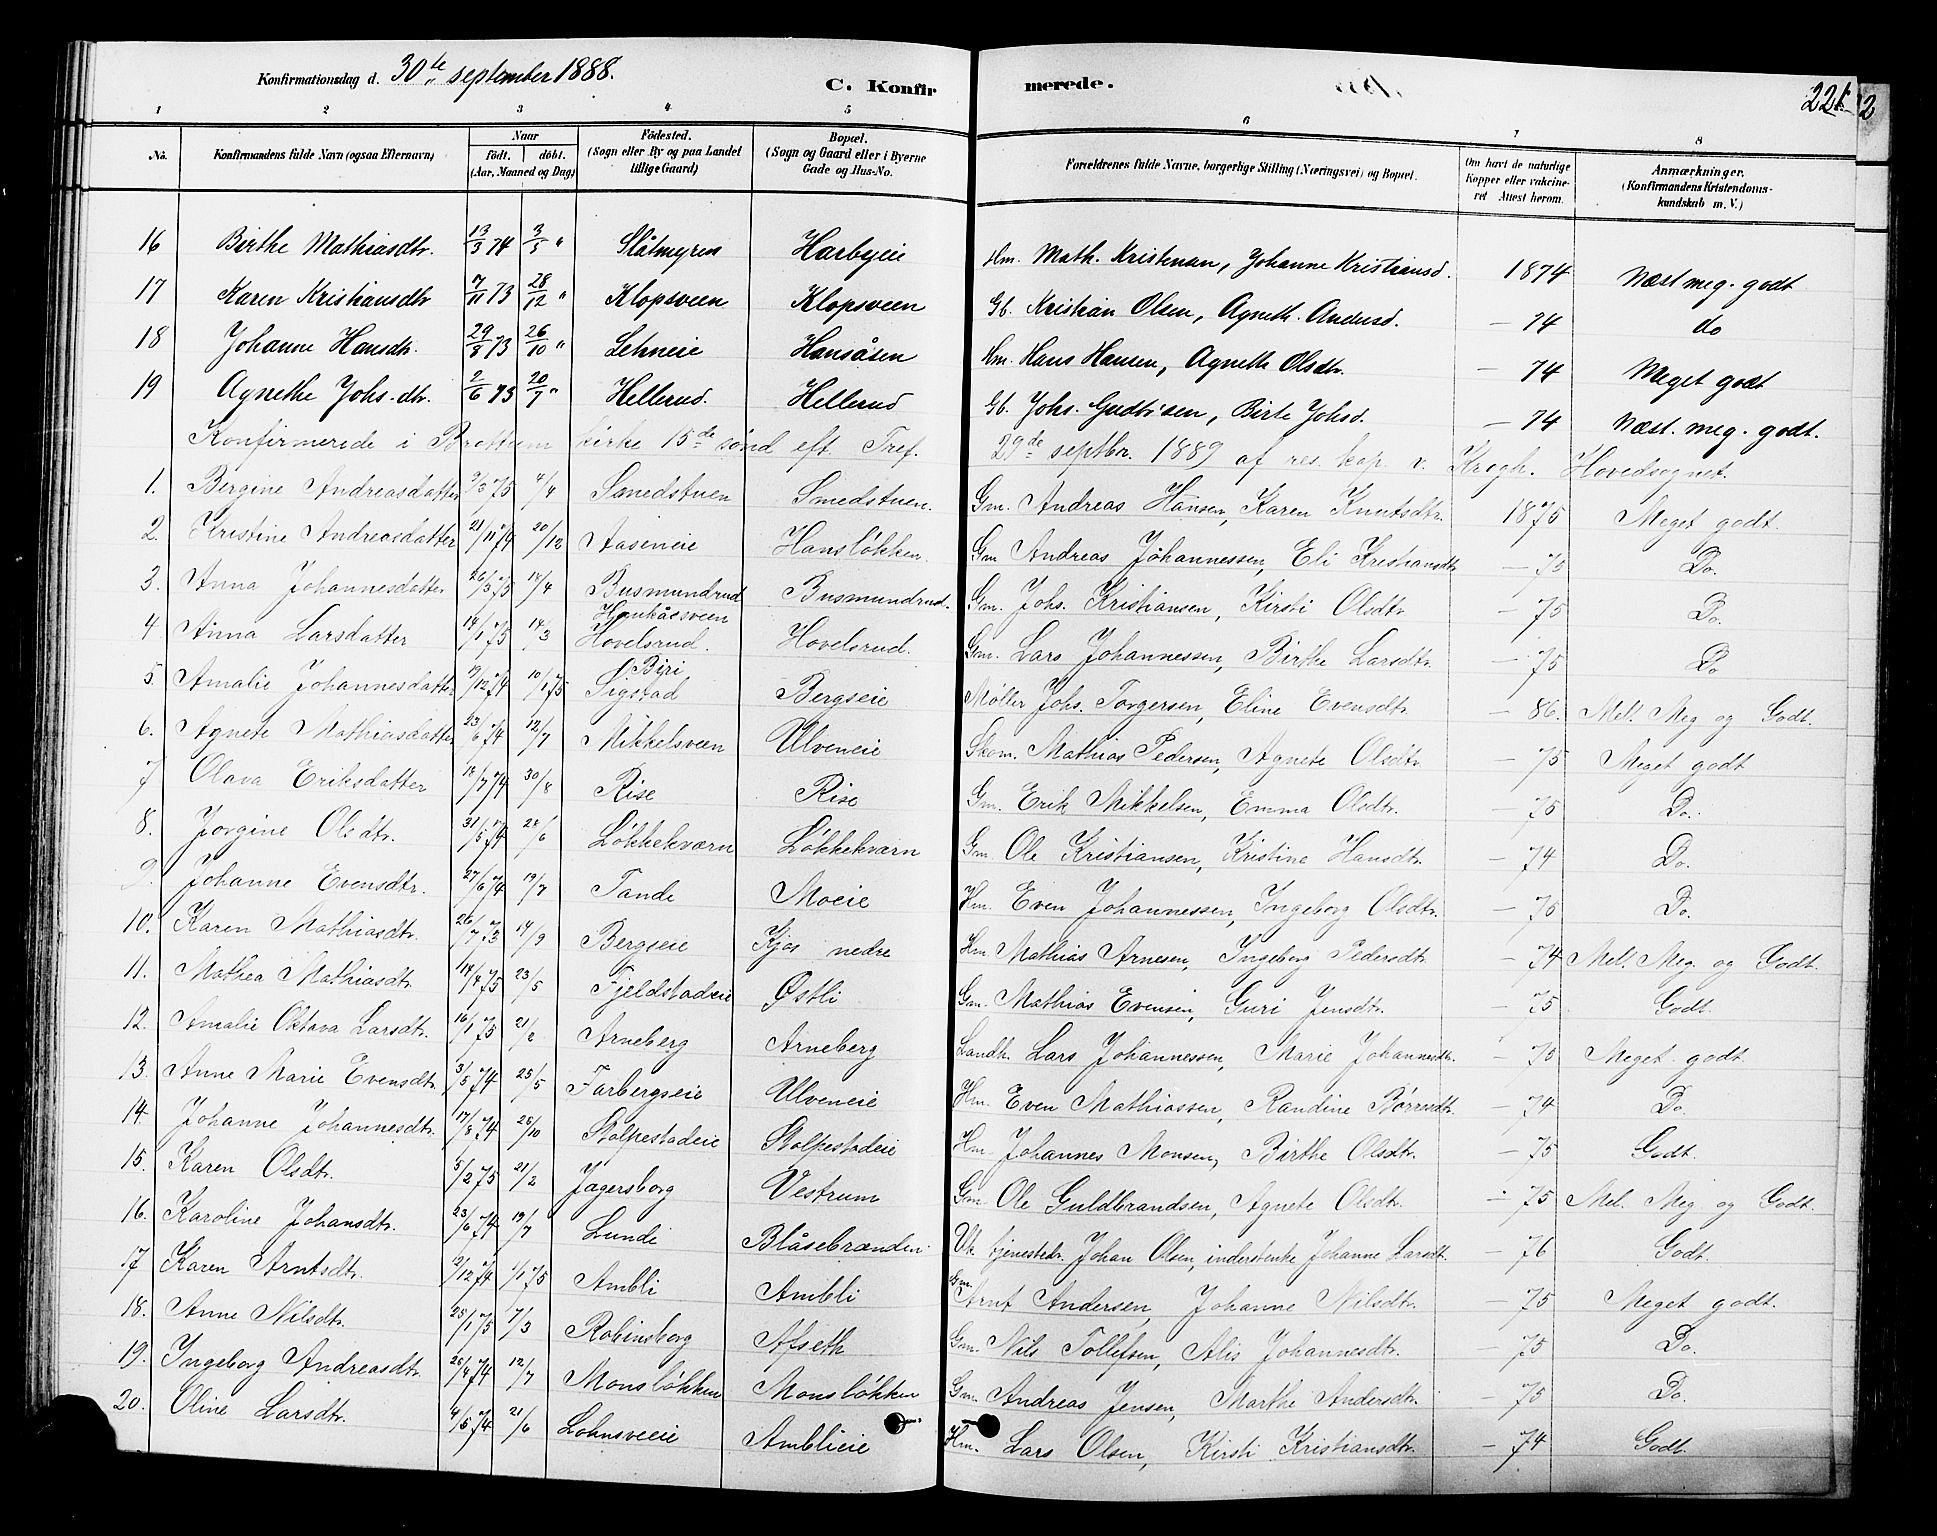 Konfirmationsdag d. 30te september 1888.
C. Konfirmerede.
221
2
1 2 3 4 5 6 7 8
No. Konfirmandens fulde Navn (ogsaa Efternavn) Naar födt. döbt. (Aar, Maaned og Dag) Födested. (Sogn eller By og paa Landet tillige Gaard) Bopæl. (Sogn og Gaard eller i Byerne Gade og Hus-No.) Forældrenes fulde Navne, borgerlige Stilling (Næringsvei) og Bopæl. Om havt de naturlige Kopper eller vakcineret Attest herom. Anmærkninger. (Konfirmandens Kristendomskundskab m. V.)
16 Birthe Mathiasdtr. 13/3 74 3/5 " Slåtmyren Harbyeie Hm. Math. Kristensen, Johanne Kristiansd. 1874 Næst meg. godt
17 Karen Kristiansdtr 7/11 73 28/12 " Klopsveen Klopsveen Gb. Kristian Olsen, Agneth. Andersd. — 74 do
18 Johanne Hansdtr. 29/8 73 26/10 " Lehneie Hansåsen Hm. Hans Hansen, Agneth Olsdtr. — 74 Meget godt
19 Agnethe Johs.dtr. 2/6 73 20/7 " Hellerud. Hellerud Gb. Johs. Gudbr.sen, Birte Johsd. — 74 Næst. meg. godt.
Konfirmerede i Brøttum kirke 15de sønd eft. Tref. 29de septbr. 1889 af res. kap. v. Krogh. Hovedsognet.
1. Bergine Andreasdatter 9/3 75 4/4 Smedstuen Smedstuen. Gm. Andreas Hansen, Karen Knutsdtr. 1875 Meget godt.
2. Kristine Andreasdatter 21/11 74 20/12 Aaseneie Hansløkken. Gm Andreas Johannessen, Eli Kristiansdtr — 75 Do.
3. Anna Johannesdatter 26/3 75 18/4 Busmundrud Busmundrud. Gm. Johs. Kristiansen, Kirsti Olsdtr — 75 Do.
4 Anna Larsdatter 14/1 75 14/3 Haukåsveen Hovelsrud. Hovelsrud. Gm. Lars Johannessen, Birthe Larsdtr. — 75 Do
5. Amalie Johannesdatter 19/12 74 10/1 75 Biri Sigstad Bergseie Møller Johs. Torgersen, Eline Evensdtr. — 86. Mel. Meg og Godt.
6. Agnete Mathiasdatter 23/6 74 12/7 Mikkelsveen Ulveneie Skom. Mathias Pedersen, Agnete Olsdtr. — 75 Meget godt
7 Olava Eriksdatter 18/7 74 30/8 Rise Rise Gm. Erik Mikkelsen, Emma Olsdtr. — 75 Do.
8. Jorgine Olsdtr. 31/5 74 28/6 Løkkekværn Løkkekværn Gm. Ole Kristiansen, Kristine Hansdtr. — 74 Do.
9. Johanne Evensdtr. 27/6 74 19/7 Tande Moeie Hm. Even Johannessen, Ingeborg Olsdtr. — 75 Do.
10. Karen Mathiasdtr. 26/7 73 14/9 Bergseie Kjos nedre Hm Mathias Arnesen, Ingeborg Pedersdtr. — 74 Mel. Meg. og Godt.
11. Mathea Mathiasdtr. 14/4 75 23/5 Fjeldstadeie Østli Gm. Mathias Evensen, Guri Jensdtr. — 75 Godt.
12. Amalie Oktava Larsdtr. 16/1 75 21/2 Arneberg Arneberg Landh. Lars Johannessen, Marie Johannesdtr. — 75 Meget godt.
13. Anne Marie Evensdtr. 3/5 74 25/5 Farbergseie Ulveneie Hm. Even Mathiassen, Randine Børresdtr. — 74 Do.
14. Johanne Johannesdtr. 17/8 74 26/10 Stolpestadeie Stolpestadeie Hm. Johannes Monsen, Birthe Olsdtr. — 75 Godt.
15. Karen Olsdtr. 5/2 75 21/2 Jagersborg Vestrum Gm. Ole Guldbrandsen, Agnete Olsdtr. — 75 Mel. Meg og Godt.
16. Karoline Johansdtr. 23/6 74 19/7 Lunde Blåsebrænden Uk. tjenestedr. Johan Olsen, inderstenke Johanne Larsdt. — 76 Godt.
17 Karen Arntsdtr. 2/12 74 1/1 75 Ambli Ambli Gm. Arnt Andersen, Johanne Nilsdtr. — 75 Meget godt.
18. Anne Nilsdtr. 25/1 75 7/3 Robinsborg Afseth Gm. Nils Tollefsen, Alis Johannesdtr. — 75 Do.
19. Ingeborg Andreasdtr. 25/4 74 12/7 Monsløkken Monsløkken Gm. Andreas Jensen, Marthe Andersdtr. — 75 Do.
20. Oline Larsdtr. 4/5 74 21/6 Lohnsveeie Amblieie Hm. Lars Olsen, Kirsti Kristiansdtr. — 74 Godt.